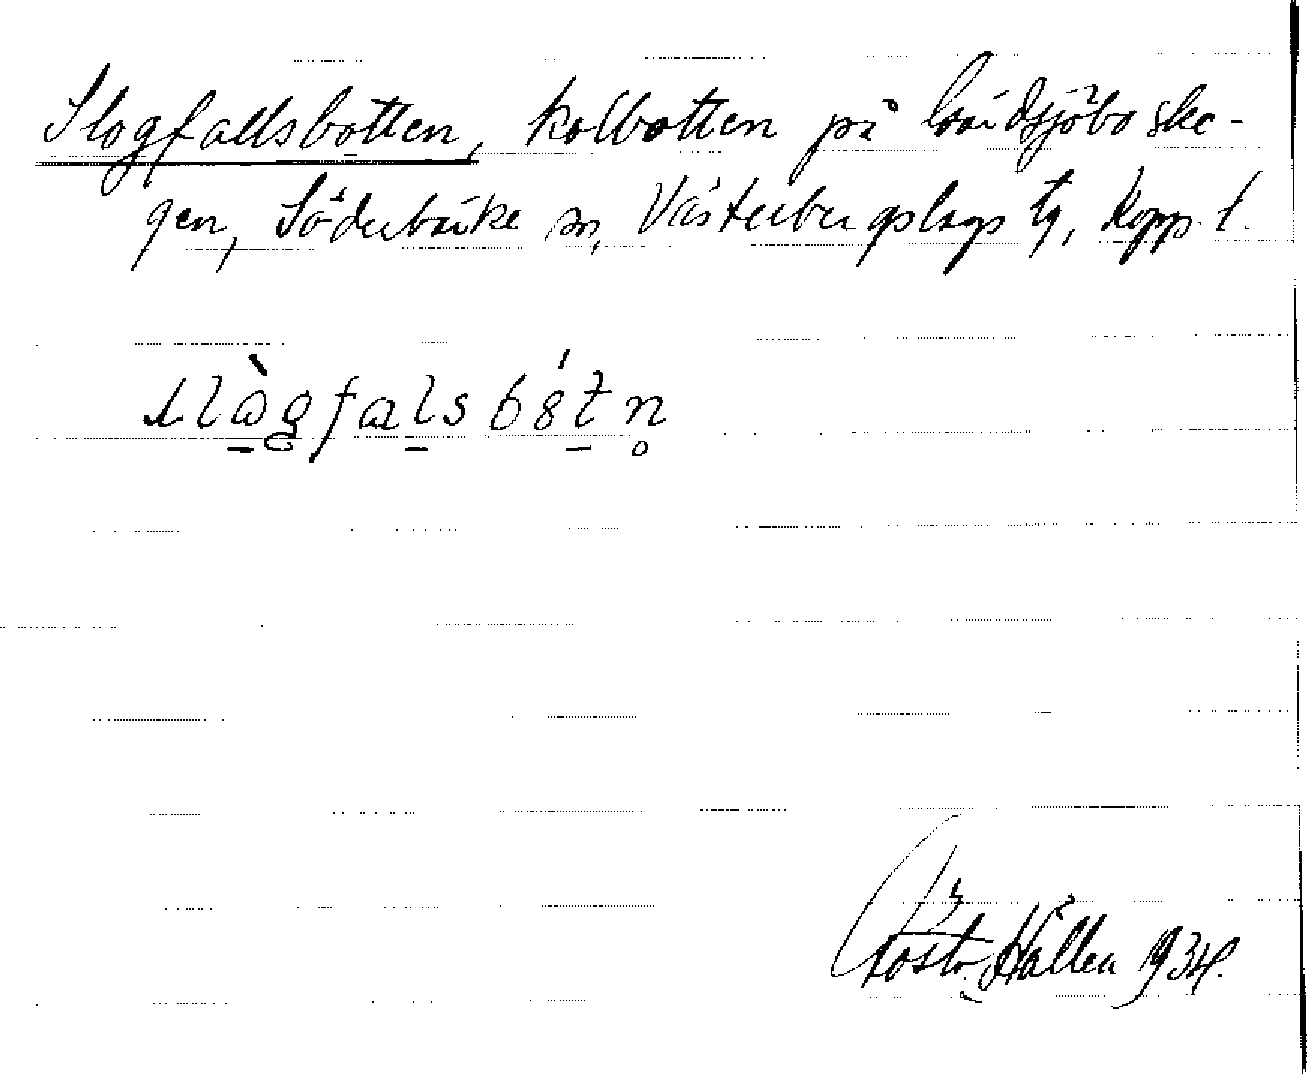 Slogfallsbotten, kolbotten på Bredsjöbo sko-
gen, Söderbärke sn, Västerbergslags tg, Kopp. l.
Gösta Hållen 1934.